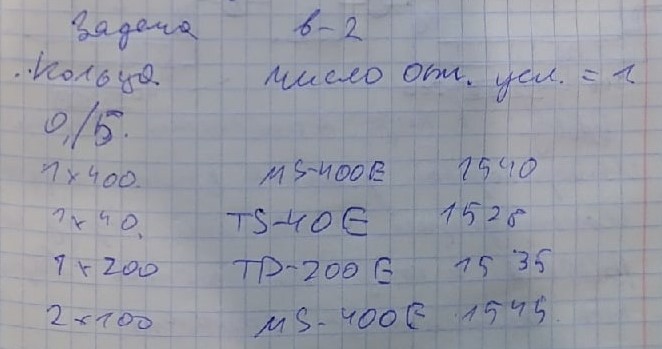 Задача в-2
Кольца число отк. усл. = 1
0,/5.
1x400. MS-400E 1540
1x40. TS-40E 1528
1x200 TD-200E 1535
2x100 MS-400E 1545.